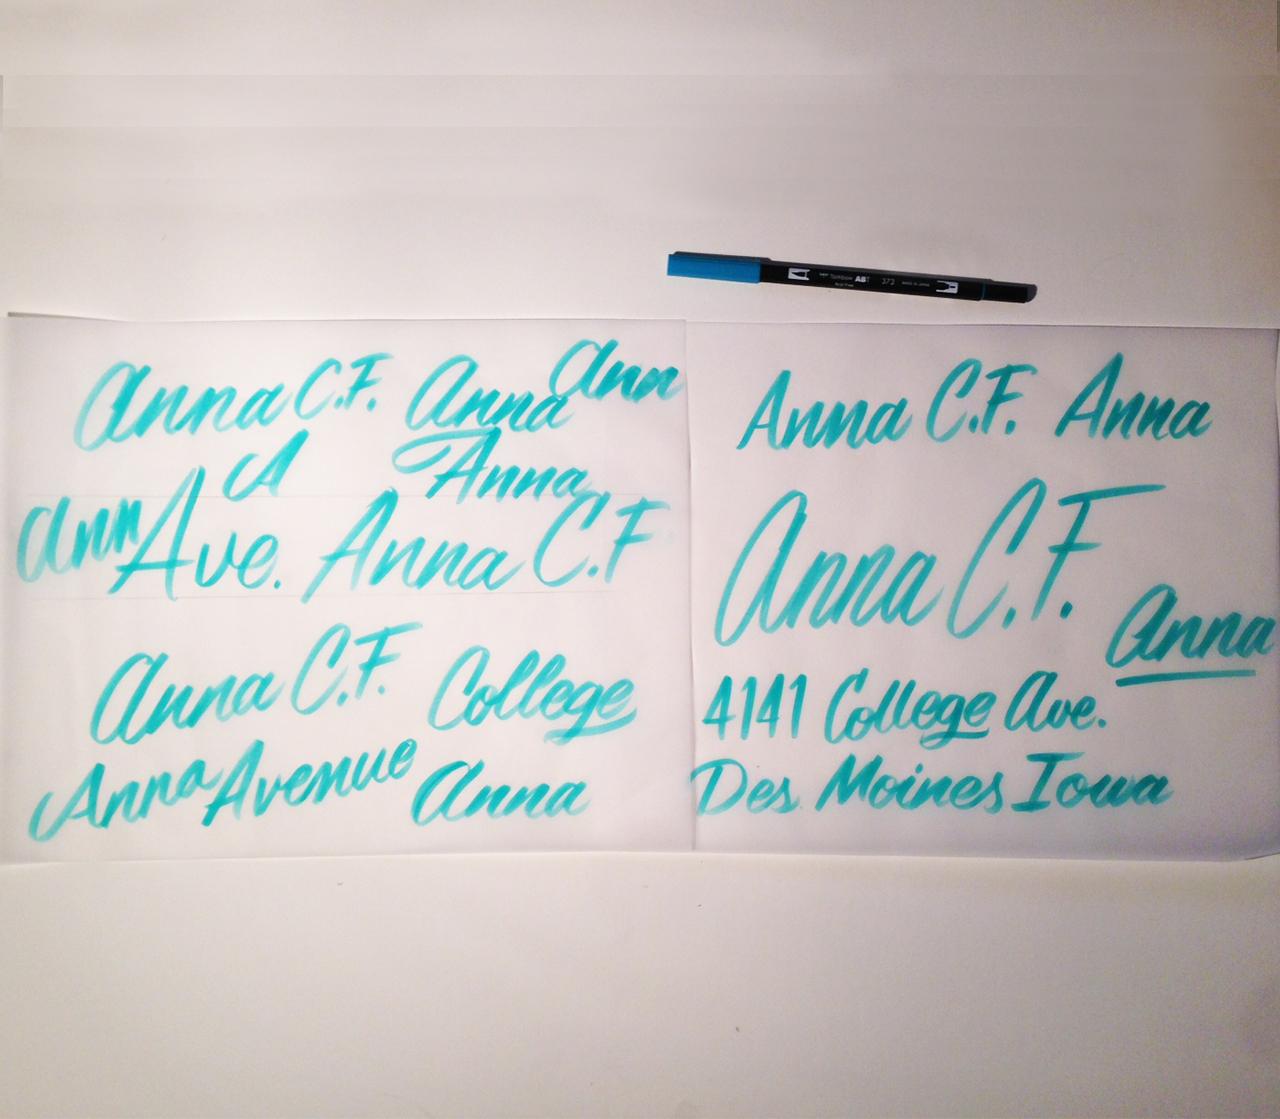 Tombow ABT 373
Anna C.F. Anna Ann
A Anna
Ann Ave. Anna C.F
Anna C.F. College
Anna Avenue Anna
Anna C.F. Anna
Anna C.F.
Anna
4141 College Ave.
Des Moines Iowa